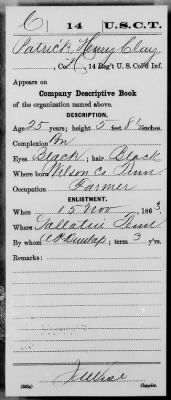 C 14 U.S.C.T.
Patrick Henry Clay
, Co. K, 14 Reg't U. S. Col'd Inf.
Appears on
Company Descriptive Book
of the organization named above.
DESCRIPTION.
Age 25 years; height 5 feet 8½ inches.
Complexion
Eyes Black; hair Black
Where born Wilson Co Tenn
Occupation Farmer
ENLISTMENT.
When 15 Nov, 1863.
Where Gallatin Tenn
By whom A P Dunlap; term 3 y'rs.
Remarks:
Copyist.